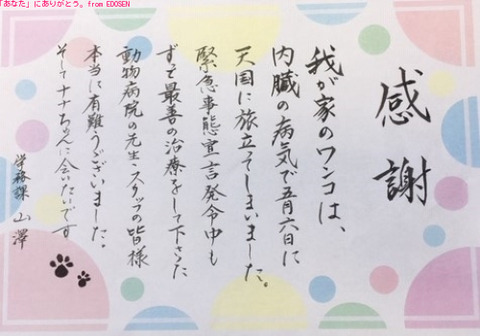 「あなた」にありがとう。from EDOSEN
感謝
我が家のワンコは、
内臓の病気で五月六日に
天国に旅立てしまいました。
緊急事態宣言発令中も
ずっと最善の治療をして下さった
動物病院の先生・スタッフの皆様
本当に有難うございました。
そしてナナちゃんに会いたいです
学務課 山澤